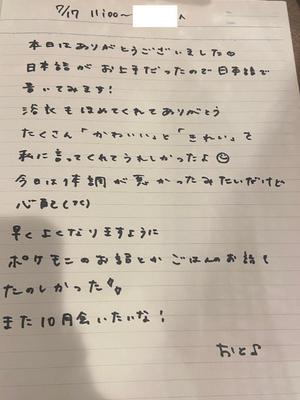 7/17 11:00〜 へ
本日はありがとうございました
日本語がお上手だったので日本語で
書いてみます!
浴衣もほめてくれてありがとう
たくさん「かわいい」と「きれい」を
私に言ってくれてうれしかったよ
今日は体調が悪かったみたいだけど
心配
早くよくなりますように
ポケモンのお話とかごはんのお話も
たのしかった
また10月会いたいな!
おと